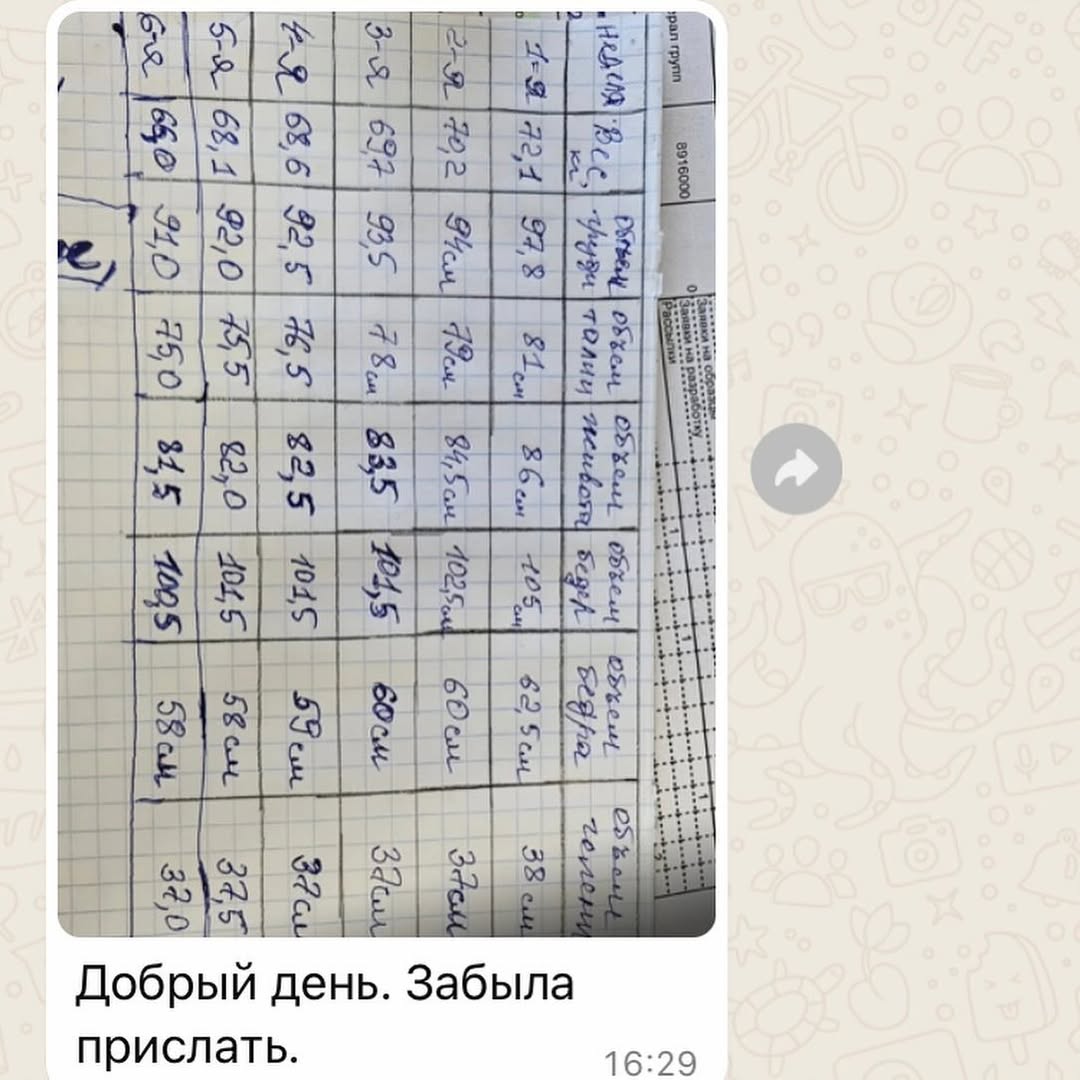 неделя Вес, кг объем груди объем талии объем живота объем бедер объем бедра объем голени
1-я 72,1 97,8 81см 86см 105см 62,5см 38см
2-я 70,2 94см 79см 84,5см 102,5см 60см 37см
3-я 69,7 93,5 78см 83,5 101,5 60см 37см
4-я 68,6 92,5 76,5 82,5 101,5 59см 37см
5-я 68,1 92,0 75,5 82,0 101,5 58см 37,5
6-я 91,0 75,0 81,5 100,5 58см 37,0
8916000
0
Заявки на образцы
Заявки на разработку
Рассылки
1
1
1
Добрый день. Забыла
прислать.
16:29